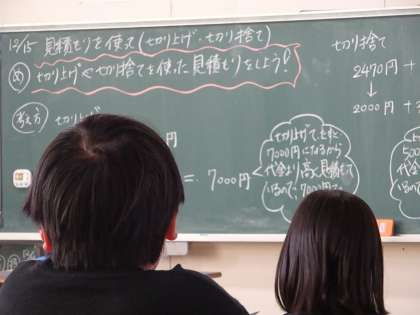 12/15 見積もりを使って(切り上げ、切り捨て)
め 切り上げや切り捨てを使った見積もりをしよう!
考え方 切り上げ
円
= 7000円
切り上げて
7000円になるから
代金より高く見積もって
いるので、7000円で
切り捨て
2470円 +
↓
2000円 +